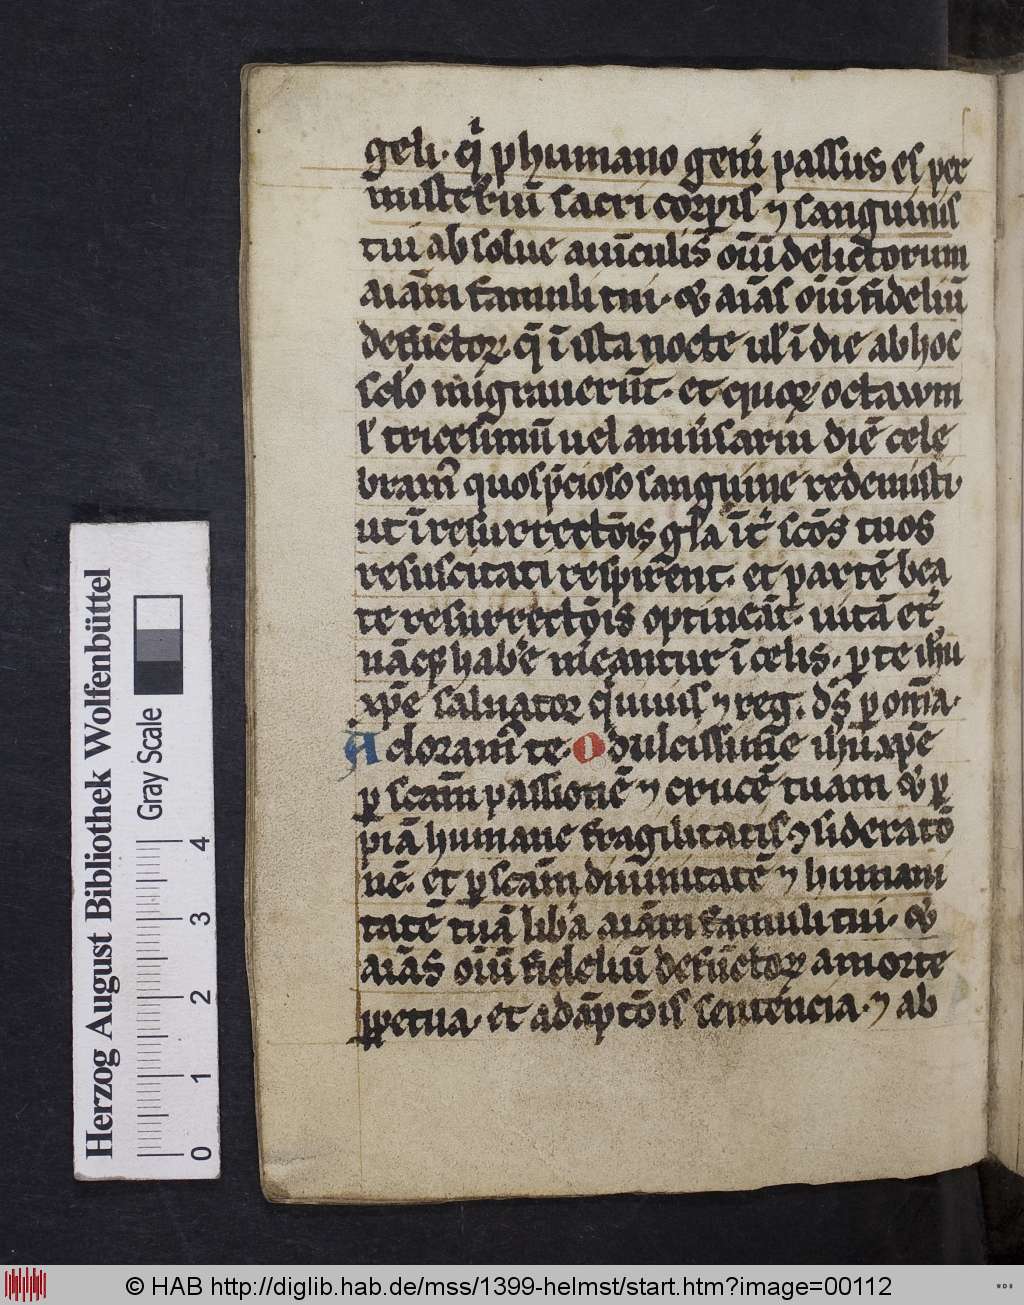 geli· q̇ p humano geñi passus es per
misteriū sacri corꝑis ⁊ sanguinis
tui absolue a uīculis oīu᷑ delictorum
aīam famuli tui· ⁊ aīas oīu᷑ fideliū
defūctoꝝ q̄ ī ista nocte ul̓ ī die ab hoc
sc̄lo migrauerūt· et quoꝝ octauum
l̓ tricesimū uel anniūsariu diē cele
bram᷑ quos p̄cioso sanguine redemisti·
ut ī resurrectōis gl̓a īt̓ sc̄os tuos
resuscitati respirent· et partē bea
te resurrectōis optineāt· uitā et̓
nāꝗ habe᷑ meantur ī celis· ꝑ te ih̄u
xp̄e saluator q̓ uiuis ⁊ reg̓. ds̄ ꝑ om̄a·
Adoram᷑ te· O dulcissime ih̄u xp̄e
ꝑ sc̄am passionē ⁊ crucē tuam ⁊ ꝑ
piā humane fragilitatis ꝯsideratō
nē· et ꝑ sc̄am diuinitatē ⁊ humani
tatē tuā lib̓a aīam famuli tui· ⁊
aīas oīu᷑ fideliū defūctoꝝ a morte
ꝑpetua· et a dāpnatōis sentencia· ⁊ ab
Herzog August Bibliothek Wolfenbüttel
Gray Scale
0 1 2 3 4
© HAB http://diglib.hab.de/mss/1399-helmst/start.htm?image=00112